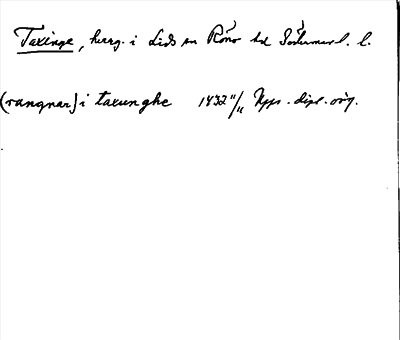 Taxinge, herrg. i Lids sn Rönö hd Södermanl. l.
(ragnar) i taxunghe 1432 11/11 Upps. dipl. orig.